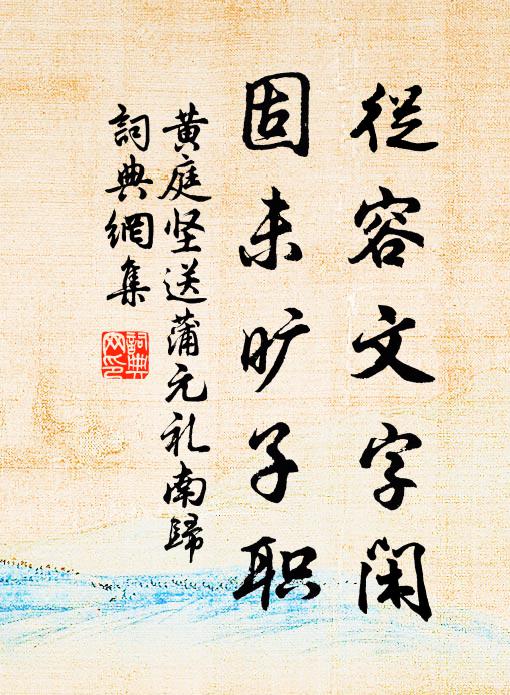 從容文字閑
固未旷子职
黄庭坚送蒲元礼南歸
詞典網集
詞典
网印